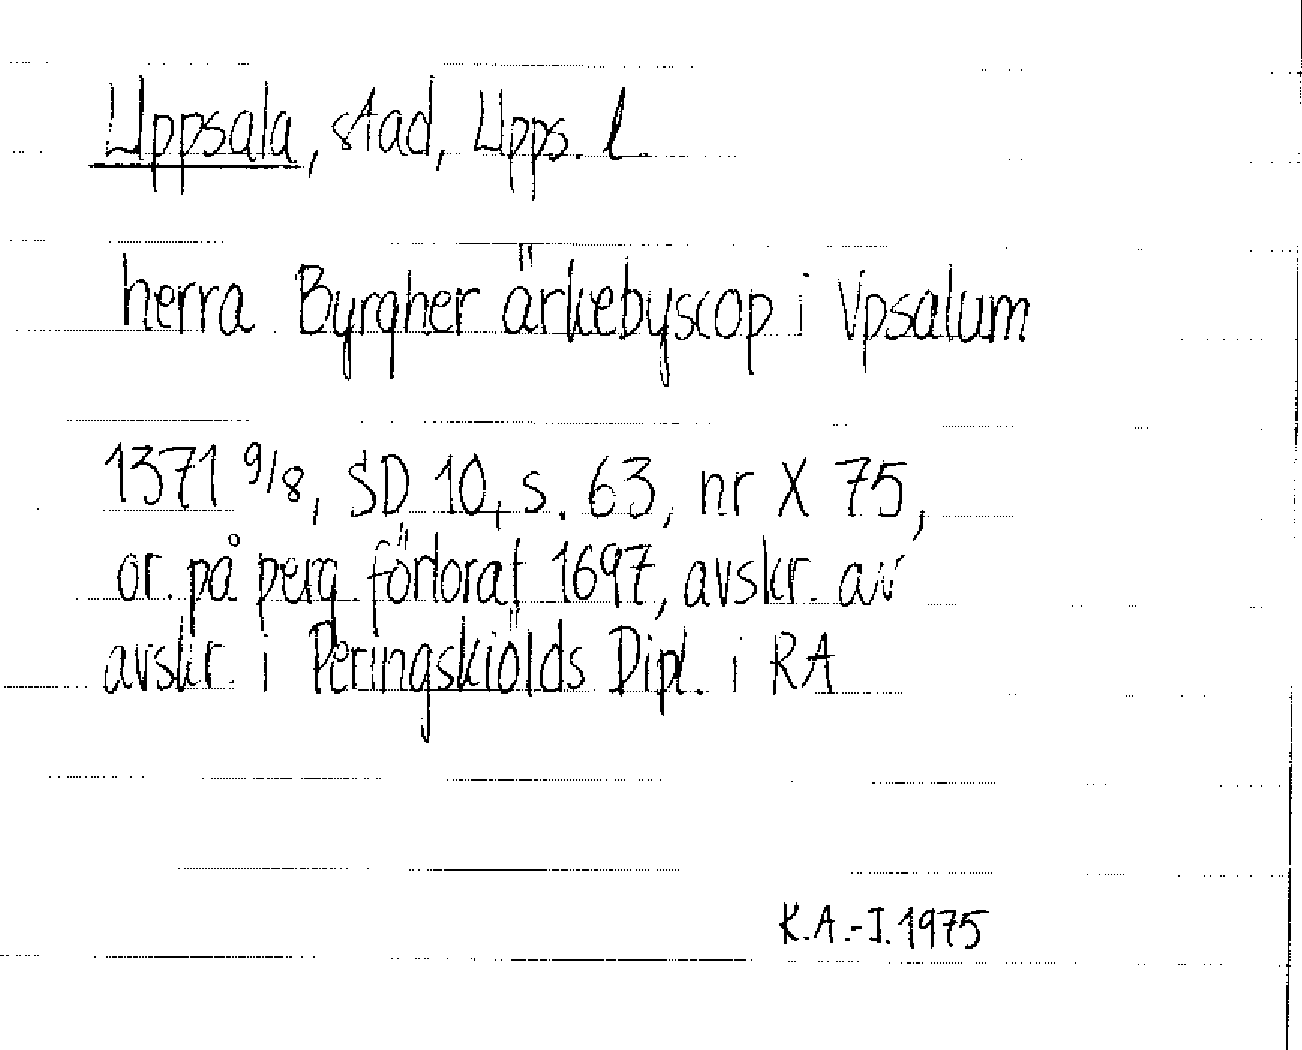 Uppsala, stad, Upps. l.
herra Byrgher ärkebyscop i Vpsalum
1371 9/8, SD 10, s. 63, nr X 75,
or. på perg. förlorat 1697, avskr. av
avskr. i Peringskiölds Dipl. i RA
K.A.-I. 1975